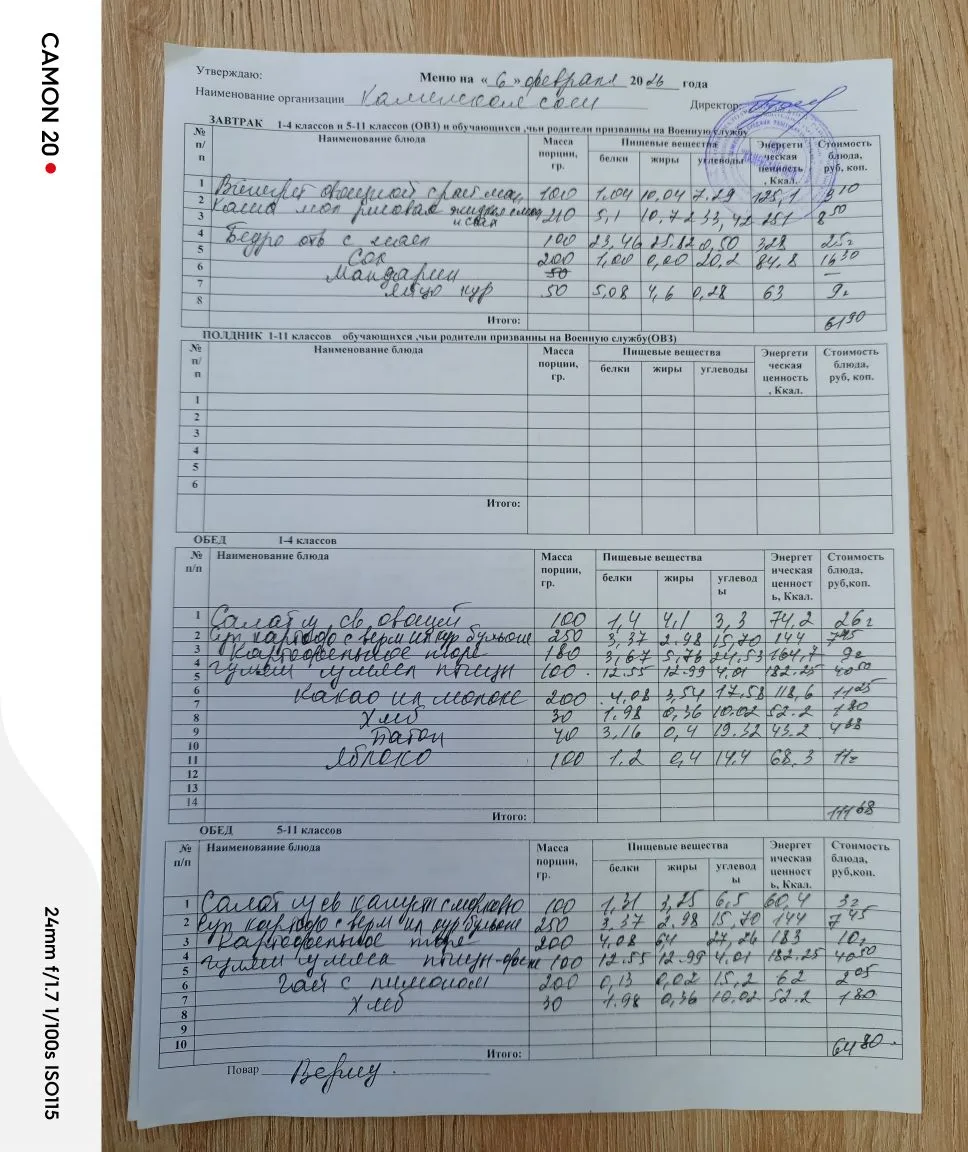 CAMON 20
24mm f/1.7 1/100s ISO115
Утверждаю:
Меню на « 6 » февраля 2026 года
Наименование организации Каменская сош
Директор:
ЗАВТРАК 1-4 классов и 5-11 классов (ОВЗ) и обучающихся ,чьи родители призванны на Военную службу
№ п/п Наименование блюда Масса порции, гр. Пищевые вещества белки жиры углеводы Энергетическая ценность, Ккал. Стоимость блюда, руб, коп.
1 Винегрет овощной с раст мас 100 1,04 10,04 7.29 125,1 3 10
2
3 Каша мол рисовая жидкая с мас 210 5,1 10,72 33,42 251 8 50
4 Бедро отв с 100 23,46 25.82 0,50 328 25
5 Сок 200 1,00 0,00 20,2 84,8 16 30
6 Мандарин 50 —
7 яйцо кур 50 5,08 4,6 0,28 63 9
8
Итого: 61 90
ПОЛДНИК 1-11 классов обучающихся ,чьи родители призванны на Военную службу(ОВЗ)
№ п/п Наименование блюда Масса порции, гр. Пищевые вещества белки жиры углеводы Энергетическая ценность, Ккал. Стоимость блюда, руб, коп.
1
2
3
4
5
6
Итого:
ОБЕД 1-4 классов
№ п/п Наименование блюда Масса порции, гр. Пищевые вещества белки жиры углеводы Энергетическая ценность, Ккал. Стоимость блюда, руб,коп.
1 Салат из св. овощей 100 1,4 4,1 3,3 74,2 26
2 Суп картоф с верм на кур бульоне 250 3,37 2.98 15,70 144 7 45
3 Картофельное пюре 180 3,67 5,76 24,53 164,7 9
4
5 Гуляш из мяса птицы 100 12.55 12.99 4.01 182.25 40 50
6
7 Какао на молоке 200 4,08 3,54 17,58 118,6 11 25
8 Хлеб 30 1.98 0,36 10.02 52.2 1 80
9 Батон 40 3,16 0,4 19.32 43.2 4 68
10
11 Яблоко 100 1.2 0,4 14.4 68.3 11
12
13
14
Итого: 111 68
ОБЕД 5-11 классов
№ п/п Наименование блюда Масса порции, гр. Пищевые вещества белки жиры углеводы Энергетическая ценность, Ккал. Стоимость блюда, руб,коп.
1 Салат из св капуст с морковью 100 1,31 3,25 6,5 60,4 3
2 Суп картоф с верм на кур бульоне 250 3,37 2.98 15,70 144 7 45
3 Картофельное пюре 200 4.08 64 27,26 183 10
4
5 Гуляш из мяса птицы 100 12.55 12.99 4.01 182.25 40 50
6 Чай с лимоном 200 0,13 0,02 15,2 62 2 05
7 Хлеб 30 1.98 0,36 10.02 52.2 1 80
8
9
10
Итого: 64 80
Повар